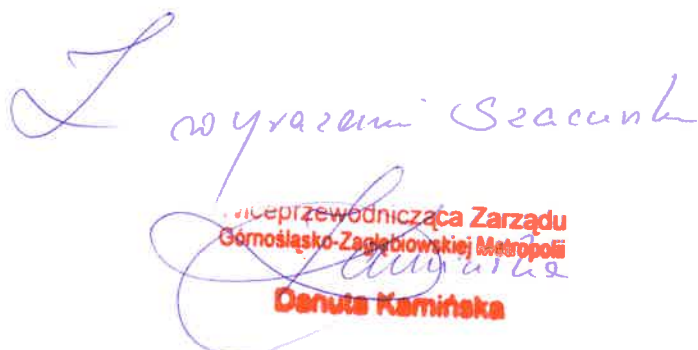 Z wyrazami szacunku
Wiceprzewodnicząca Zarządu
Górnośląsko-Zagłębiowskiej Metropolii
Kamińska
Danuta Kamińska